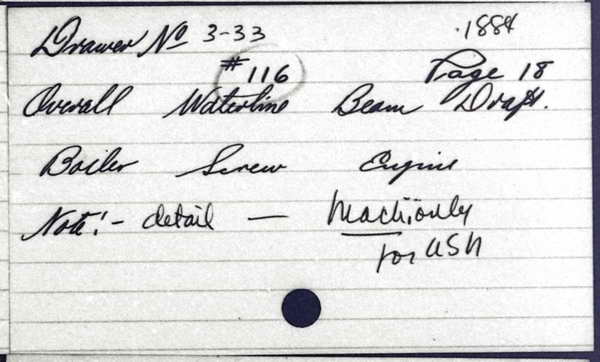 Drawer No 3-33 1884
#116 Page 18
Overall Waterline Beam Draft.
Boiler Screw Engine
Note:- detail — Mach. only
for USN